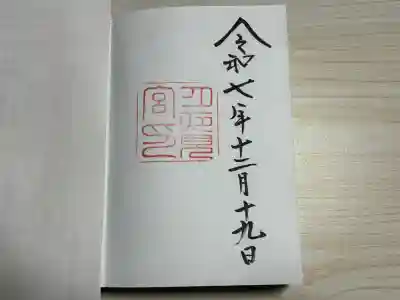 令和七年十二月十九日
宮印